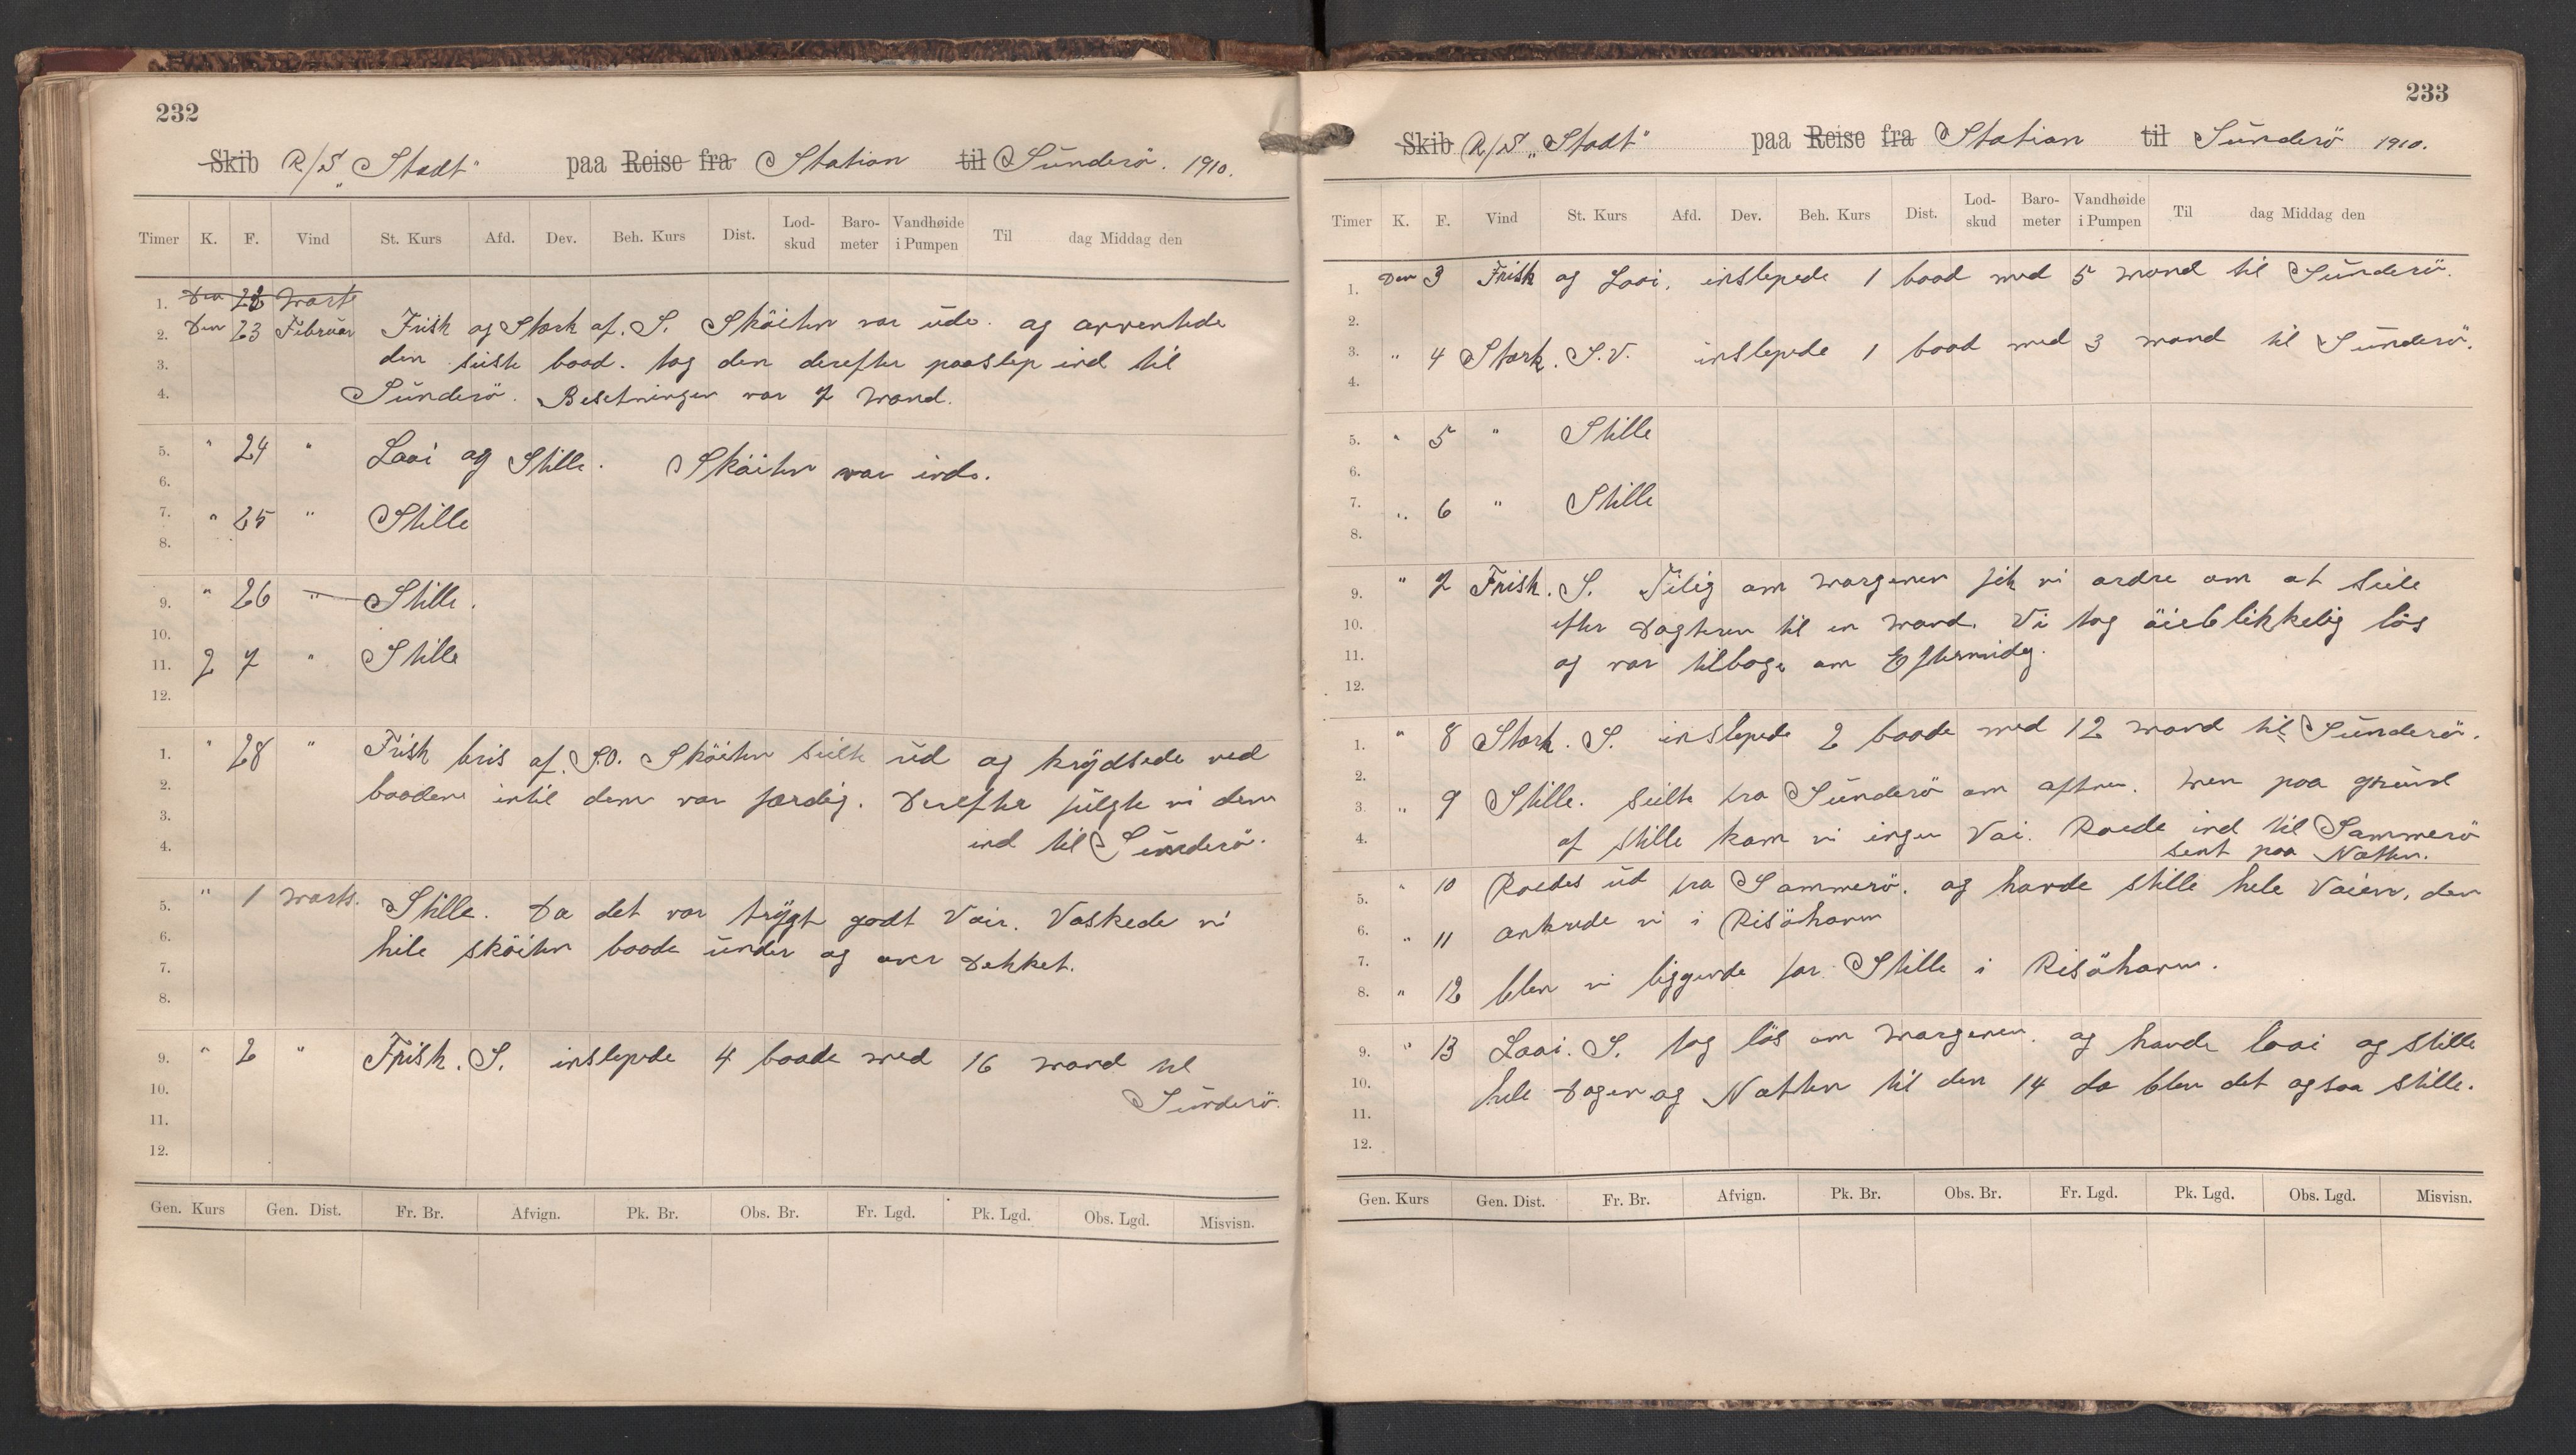 232
Skib R/S „Stadt" paa Reise fra Station til Sunderö. 1910.
Timer K. F. Vind St. Kurs Afd. Dev. Beh. Kurs Dist. Lod-skud Baro-meter Vandhøide i Pumpen Til dag Middag den
1. Den 28 Marts
2. Den 23 Februar Frisk og Stærk af. S. Sköiten var ude. og avventede
3. den siste baad. tog den derefter paaslep ind til
4. Sunderö. Besetningen var 7 Mand.
5. " 24 " Laai og Stille. Sköiten var inde.
6.
7. " 25 " Stille
8.
9. " 26 " Stille.
10.
11. 2 7 " Stille
12.
1. " 28 " Frisk bris af. S.O. Sköiten seilte ud og krydsede ved
2. baadene intil dem var færdig. Derefter fulgte vi dem
3.
4. ind til Sunderö.
5. " 1 Marts. Stille. Da det var trygt godt Vair. Vaskede vi
6. hele sköiten baade under og over Dekket.
7.
8.
9. " 2 " Frisk. S. inslepede 4 baade med 16 mand til
10. Sunderö.
11.
12.
Gen. Kurs Gen. Dist. Fr. Br. Afvign. Pk. Br. Obs. Br. Fr. Lgd. Pk. Lgd. Obs. Lgd. Misvisn.
233
Skib R/S „Stadt" paa Reise fra Station til Sunderö 1910.
Timer K. F. Vind St. Kurs Afd. Dev. Beh. Kurs Dist. Lod-skud Baro-meter Vandhøide i Pumpen Til dag Middag den
1. Den 3 Frisk og Laai. inslepede 1 baad med 5 mand til Sunderö.
2.
3. " 4 Stærk. S.V. inslepede 1 baad med 3 mand til Sunderö.
4.
5. " 5 " Stille
6.
7. " 6 " Stille
8.
9. " 7 Frisk. S. Tilig om Morgenen fik vi ordre om at seile
10. efter Dogteren til en Mand. Vi tog öieblikkelig lös
11. og var tilbage om Eftermidg.
12.
1. " 8 Stærk. S. inslepede 2 baade med 12 mand til Sunderö.
2.
3. " 9 Stille. seilte fra Sunderö om aftnen. Men paa grund
4. af stille kom vi ingen Vai. Roede ind til Sammerö
sent paa Natten.
5. " 10 Roedes ud fra Sammerö. og havde stille hele Vaien, den
6. " 11 ankrede vi i Risöhavn
7.
8. " 12 blev vi liggende for Stille i Risöhavn.
9. " 13 Laai. S. tog lös om Morgenen. og havde laai og stille
10. hele Dagen og Natten til den 14 da blev det ogsaa stille.
11.
12.
Gen. Kurs Gen. Dist. Fr. Br. Afvign. Pk. Br. Obs. Br. Fr. Lgd. Pk. Lgd. Obs. Lgd. Misvisn.